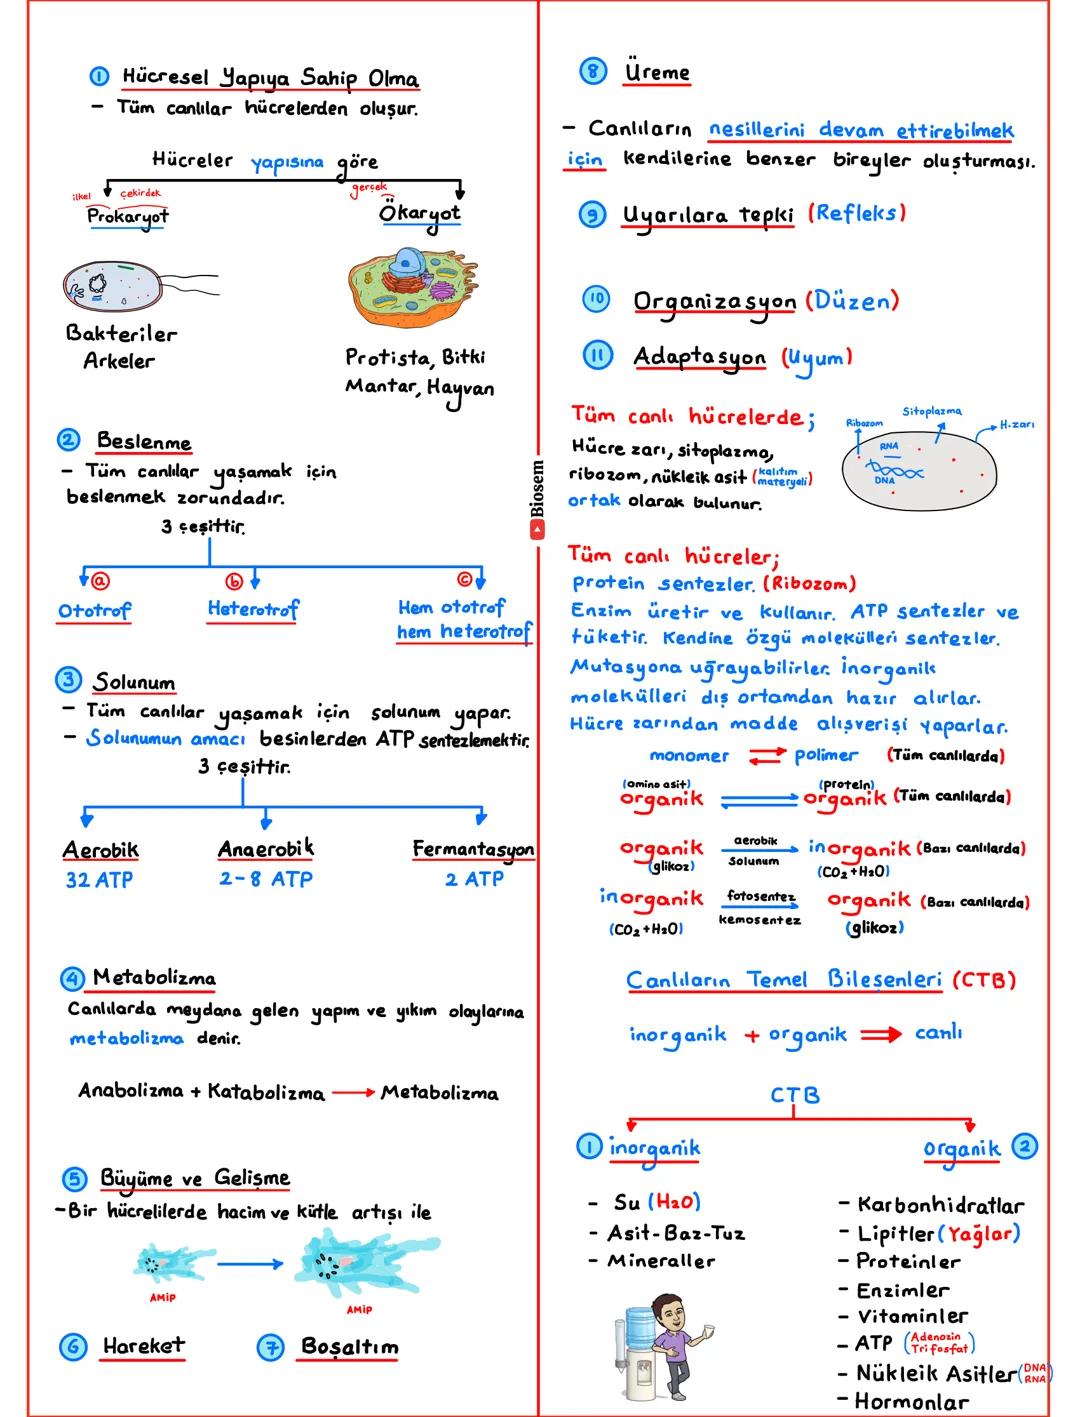 1 Hücresel Yapıya Sahip Olma
- Tüm canlılar hücrelerden oluşur.
Hücreler yapısına göre
ilkel çekirdek
gerçek
Prokaryot
Ökaryot
Bakteriler
Arkeler
Protista, Bitki
Mantar, Hayvan
2 Beslenme
- Tüm canlılar yaşamak için
beslenmek zorundadır.
3 çeşittir.
a b c
Ototrof
Heterotrof
Hem ototrof
hem heterotrof
3 Solunum
- Tüm canlılar yaşamak için solunum yapar.
- Solunumun amacı besinlerden ATP sentezlemektir.
3 çeşittir.
Aerobik
Anaerobik
Fermantasyon
32 ATP
2-8 ATP
2 ATP
4 Metabolizma
Canlılarda meydana gelen yapım ve yıkım olaylarına
metabolizma denir.
Anabolizma + Katabolizma → Metabolizma
5 Büyüme ve Gelişme
-Bir hücrelilerde hacim ve kütle artışı ile
AMİP
AMİP
6 Hareket
7 Boşaltım
Biosem
8 Üreme
- Canlıların nesillerini devam ettirebilmek
için kendilerine benzer bireyler oluşturması.
9 Uyarılara tepki (Refleks)
10 Organizasyon (Düzen)
11 Adaptasyon (Uyum)
Tüm canlı hücrelerde;
Hücre zarı, sitoplazma,
ribozom, nükleik asit (kalıtım materyali)
ortak olarak bulunur.
Sitoplazma
Ribozom
H.zarı
RNA
DNA
Tüm canlı hücreler;
Protein sentezler. (Ribozom)
Enzim üretir ve kullanır. ATP sentezler ve
tüketir. Kendine özgü molekülleri sentezler.
Mutasyona uğrayabilirler. İnorganik
molekülleri dış ortamdan hazır alırlar.
Hücre zarından madde alışverişi yaparlar.
monomer ⇌ polimer (Tüm canlılarda)
(amino asit) (protein)
organik ⇌ organik (Tüm canlılarda)
aerobik
organik → inorganik (Bazı canlılarda)
Solunum
(glikoz) (CO₂+H₂O)
fotosentez
inorganik → organik (Bazı canlılarda)
kemosentez
(CO₂+H₂O) (glikoz)
Canlıların Temel Bileşenleri (CTB)
inorganik + organik ⇒ canlı
CTB
1 inorganik
organik 2
- Su (H₂O)
- Asit-Baz-Tuz
- Mineraller
- Karbonhidratlar
- Lipitler (Yağlar)
- Proteinler
- Enzimler
- Vitaminler
- ATP (Adenozin Trifosfat)
- Nükleik Asitler (DNA RNA)
- Hormonlar